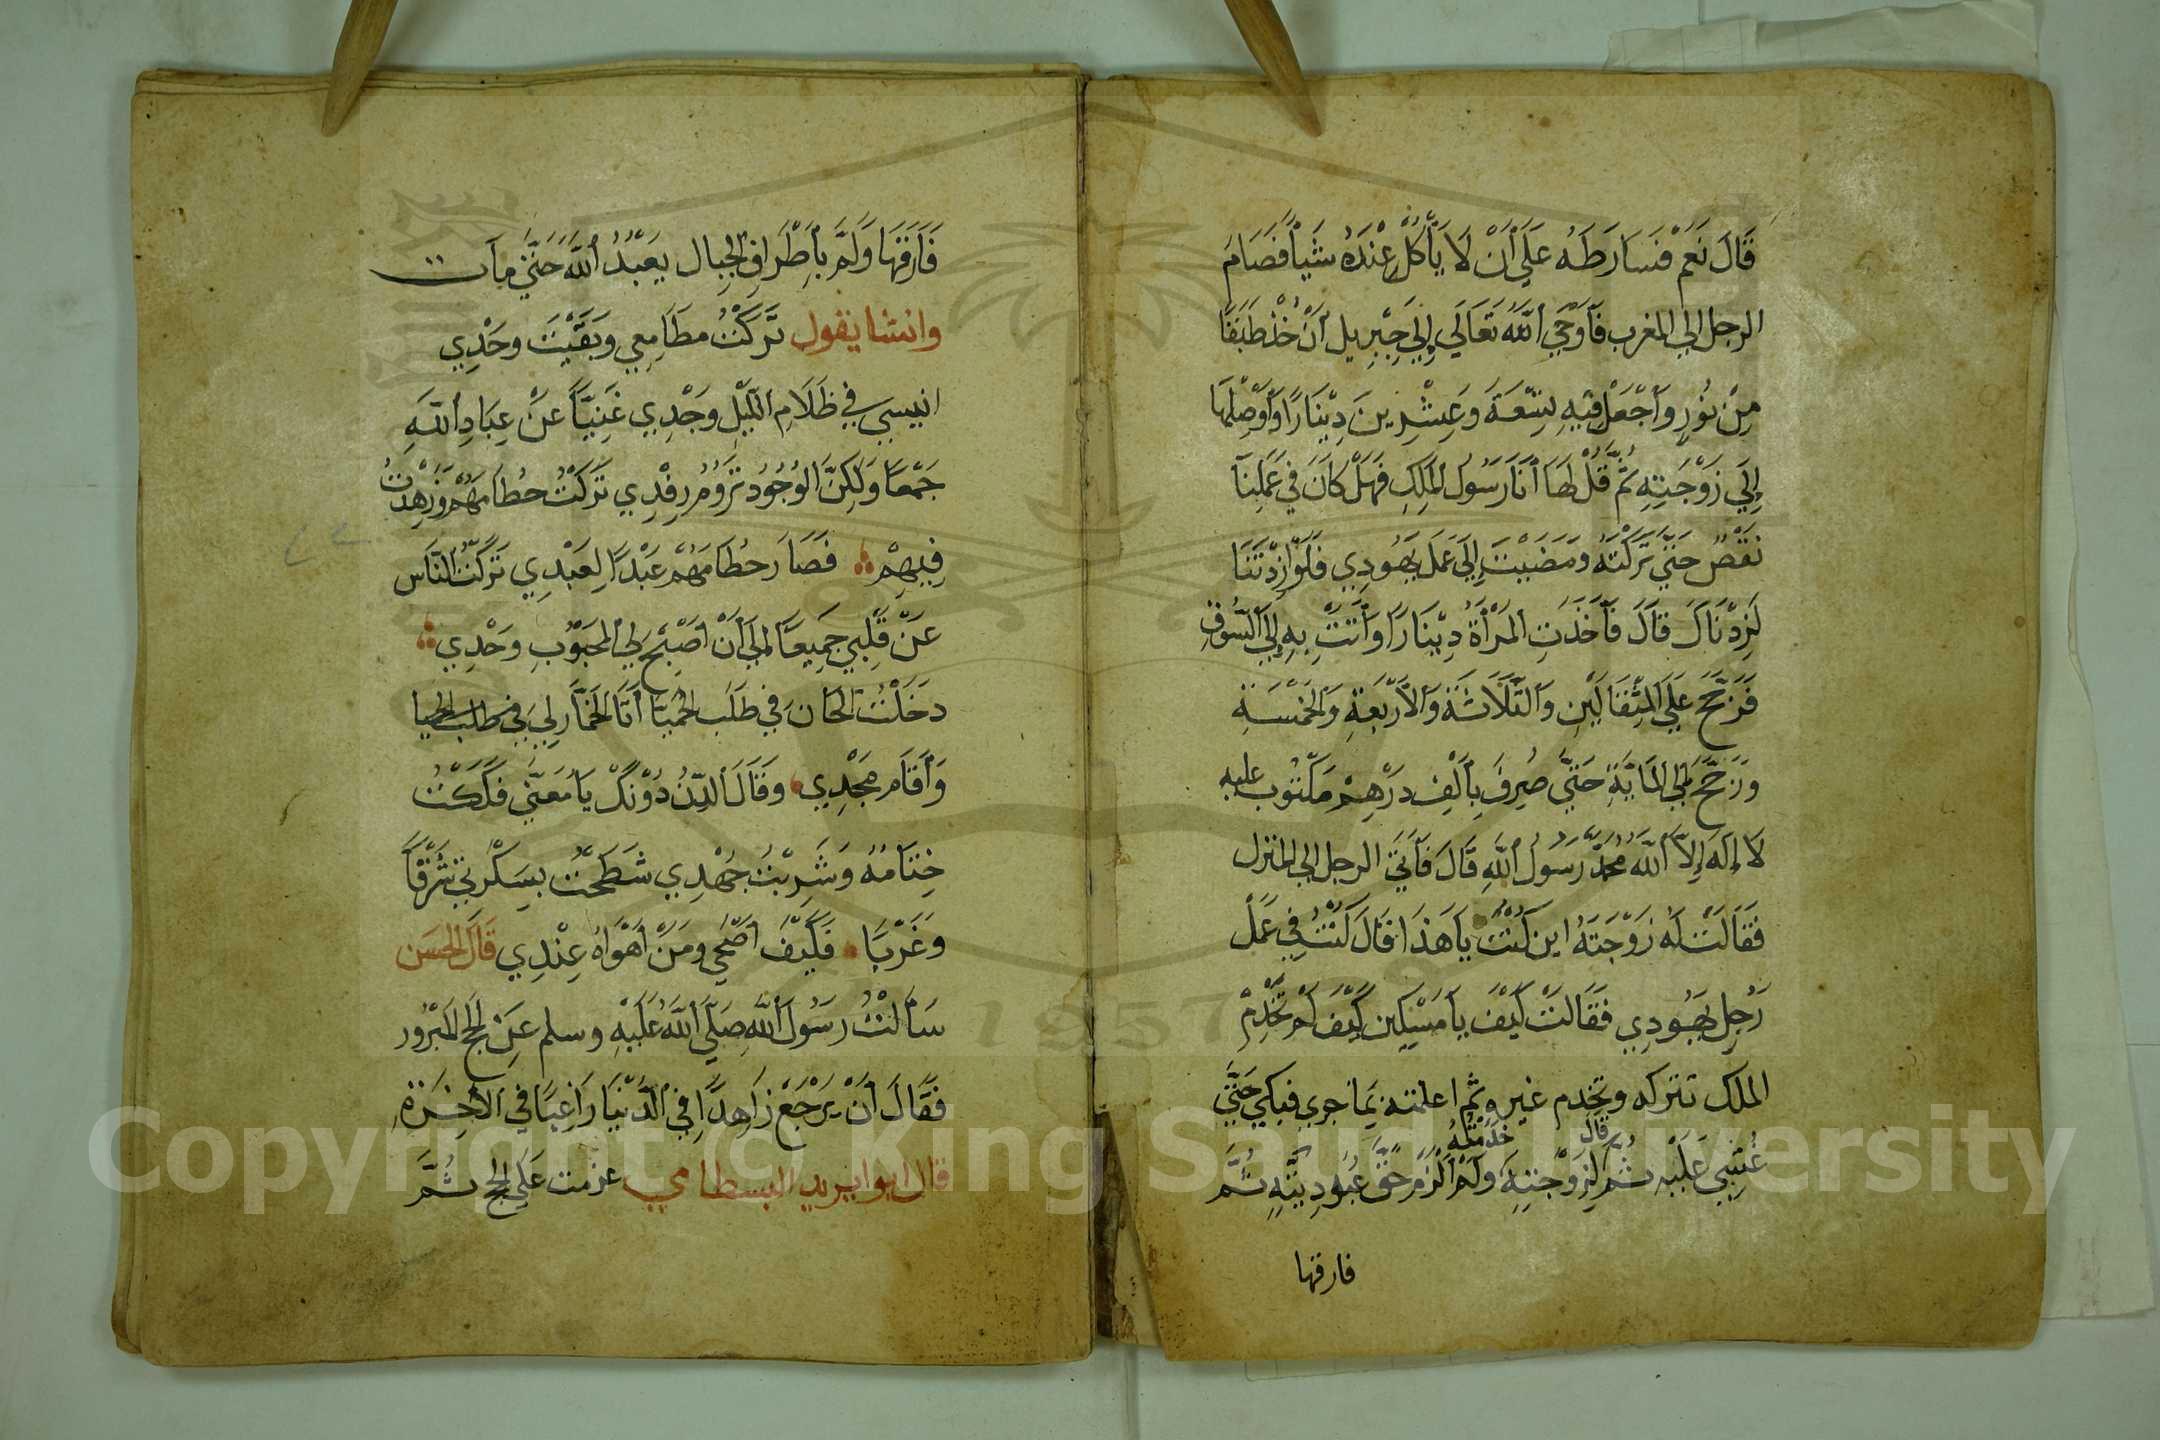 قَالَ نَعَمْ فَسَارَطَهُ عَلَي أَنْ لَا يَأْكُلْ عِنْدَهُ شَيْأً فَصَامَ
الرجل الي المغرب فَأَوْحَي اللَّهُ تَعَالَي إِلَي جِبْرِيل أَنْ خُذْ طَبَقًا
مِنْ نُورٍ وَاجْعَلْ فِيهِ تِسْعَةً وَعِشْرِينَ دِينَارًا وَأَوْصِلْهَا
إِلَي زَوْجَتِهِ ثُمَّ قُلْ لَهَا أَنَا رَسُولُ الْمَلِكِ فَهَلْ كَانَ فِي عَمَلِنَا
نَقْصٌ حَتَّي تَرَكْتَهُ وَمَضَيْتَ إِلَي عَمَلِ يَهُودِي فَلَوْ ازِدْتَنَا
لَزِدْنَاكَ قَالَ فَأَخَذَتِ الْمَرْأَةُ دِينَارًا وَأَتَتْ بِهِ إِلَي السُّوقِ
فَرَجَّحَ عَلَي الْمِثْقَالَيْنِ وَالثَّلَاثَةِ وَالْأَرْبَعَةِ وَالْخَمْسَةِ
وَرَجَّحَ الي الْمَايَةِ حَتَّي صُرِفَ بِأَلْفِ دِرْهِمْ مَكْتُوب عليه
لَا إِلَهَ إِلَّا اللَّهُ مُحَمَّدٌ رَسُولُ اللَّهِ قَالَ فَأَتَي الرجل الي المنزل
فَقَالَتْ لَهُ زَوْجَتَهُ اين كُنْتَ يَا هَذَا قَالَ كُنْتُ فِي عَمَل
رَجُلٍ يَهُودِي فَقَالَتْ كَيْفَ يَا مِسْكِين كَيْفَ لَمْ تَخْدِمْ
الملك تتركه وتخدم غيره ثم اعلمته بِمَا جري فبكي حَتَّي
غُشِيَ عَلَيْهِ ثُمَّ قال لِزَوْجَتِهِ خَدَمْتُهُ وَلَمْ أَلْزَمْ حَقَّ عُبُودِيَّتِهِ ثُمَّ
فارقها
فَارَقَهَا وَلَمَّ بِأَطْرَافِ الْجِبَال يَعْبُدُ اللَّهَ حَتَّي مات
وانشا يقول تَرَكْتُ مَطَامِعِي وَبَقَيْتَ وَحْدِي
انيسي في ظَلَامِ اللَّيْلِ وَجْدِي غَنِيًّا عَنْ عِبَادِ اللَّهِ
جَمْعًا وَلَكِنَّ الْوُجُودُ تَرُومُ رِفْدِي تَرَكْتُ حُطَامَهُمْ وَزَهِدْتُ
فِيهِمْ فَصَارَ حُطَامَهُمْ عَبْدًا لِعَبْدِي تَرَكْتُ النَّاسَ
عَنْ قَلْبِي جَمِيعًا الي أَنْ اصْبَحَ لِي الْمَحْبُوبِ وَحْدِي
دَخَلْتُ الْحَانَ فِي طَلَبِ الْحُمَيَّا أَتَا الْخَمَّارُ لِي فِي طلب الحميا
وَأَقَامَ مَجْدِي وَقَالَ الدِّنُ دُوْنَكْ يَا مُعَنَّي فَكَكْتُ
خِتَامَهُ وَشَرِبْتُ جُهْدِي شَطَحْتُ بِسَكْرَتِي شَرْقًا
وَغَرْبًا فَكَيْفَ اصْحِي وَمَنْ أَهْوَاهُ عِنْدِي قَالَ الحسن
سَأَلْتُ رَسُولَ اللَّهِ صَلَّي اللَّهُ عَلَيْهِ وسلم عَنْ الْحَجِ الْمَبْرُور
فَقَالَ أَنْ يَرْجَعَ زَاهِدًا فِي الدُّنْيَا رَاغِبًا فِي الْأَخِرَةِ
قال ابو ايزيد البسطامي عزمت عَلَي الحج ثُمَّ
Copyright © King Saud University
1957